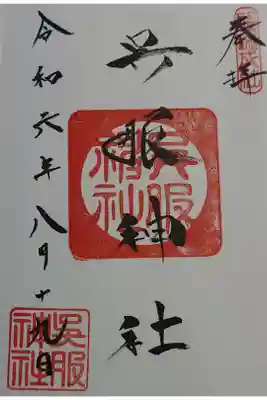 奉拝
呉服神社
呉服
神社
令和六年八月十九日
呉服
神社